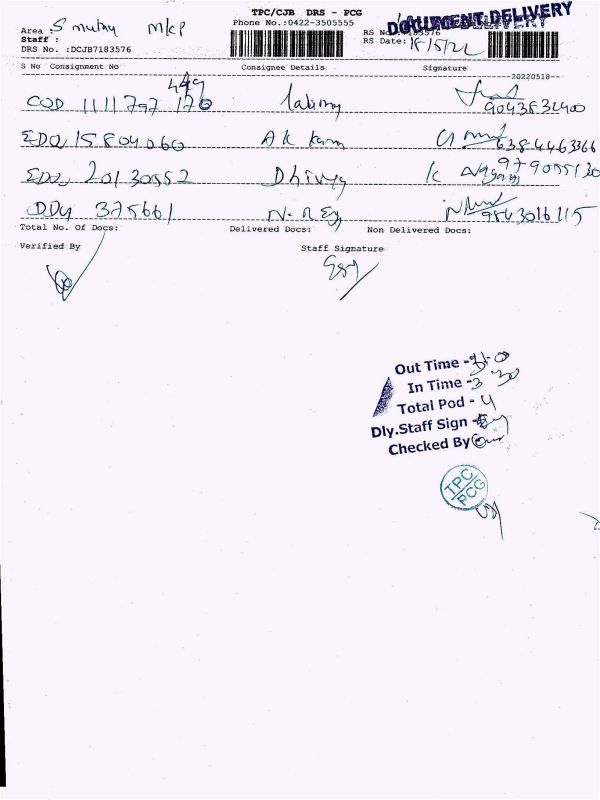 TPC/CJB DRS - PCG
DOCUMENT DELIVERY
Area : S muthu MKP
Phone No.:0422-3505555
RS No: 7183576
Staff :
RS Date: 18/5/22
DRS No. :DCJB7183576
S No Consignment No Consignee Details Signature
--20220518--
449
COD 1111797 176 9043832400
EDQ 15804060 A K Ram 6384463366
EDQ 20130552 Dhivya K 979055130
DDY 375661 9843016115
Total No. Of Docs: Delivered Docs: Non Delivered Docs:
Verified By Staff Signature
Out Time -
In Time -3 30
Total Pod - 4
Dly.Staff Sign -
Checked By
TPC
PCG